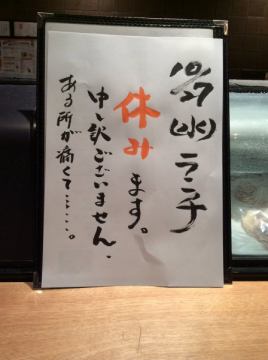 10/7(水)ランチ
休みます。
申し訳ございません、
ある所が痛くて……。